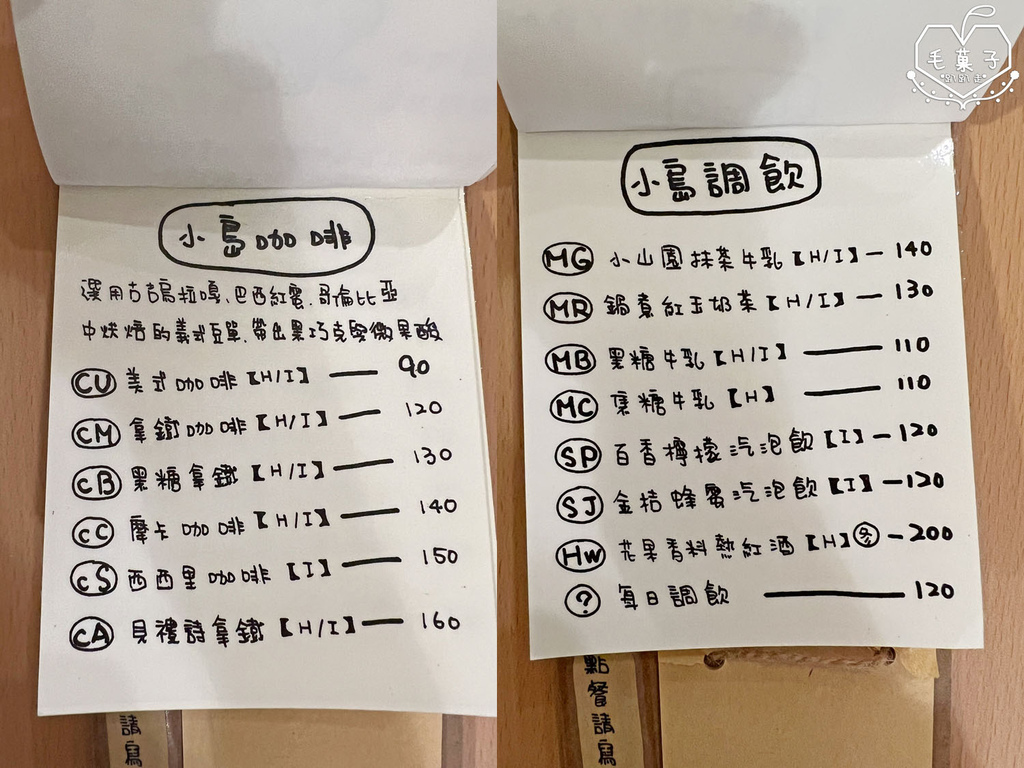 小島咖啡
選用古吉烏拉嘎、巴西紅蜜、哥倫比亞
中烘焙的義式豆單、帶出黑巧克力蜜微果酸
CU 美式咖啡【H/I】— 90
CM 拿鐵咖啡【H/I】— 120
CB 黑糖拿鐵【H/I】— 130
CC 摩卡咖啡【H/I】— 140
CS 西西里咖啡【I】— 150
CA 貝禮詩拿鐵【H/I】— 160
請寫
毛菓子
趴趴走
小島調飲
MG 小山園抹茶牛乳【H/I】— 140
MR 鍋煮紅玉奶茶【H/I】— 130
MB 黑糖牛乳【H/I】— 110
MC 焦糖牛乳【H】— 110
SP 百香檸檬汽泡飲【I】— 120
SJ 金桔蜂蜜汽泡飲【I】— 120
HW 花果香料熱紅酒【H】冬 — 200
? 每日調飲 — 120
點餐請寫